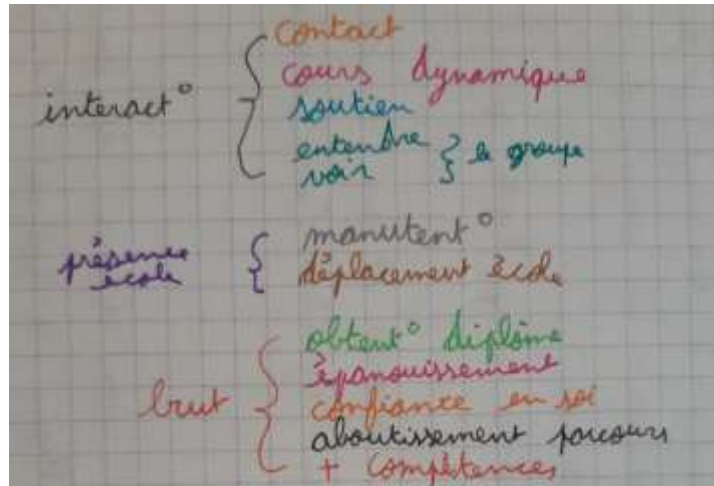 interact° { contact
cours dynamique
soutien
entendre
voir } le groupe
présence école { manutent°
déplacement école
brut { obtent° diplôme
épanouissement
confiance en soi
aboutissement parcours
+ compétences